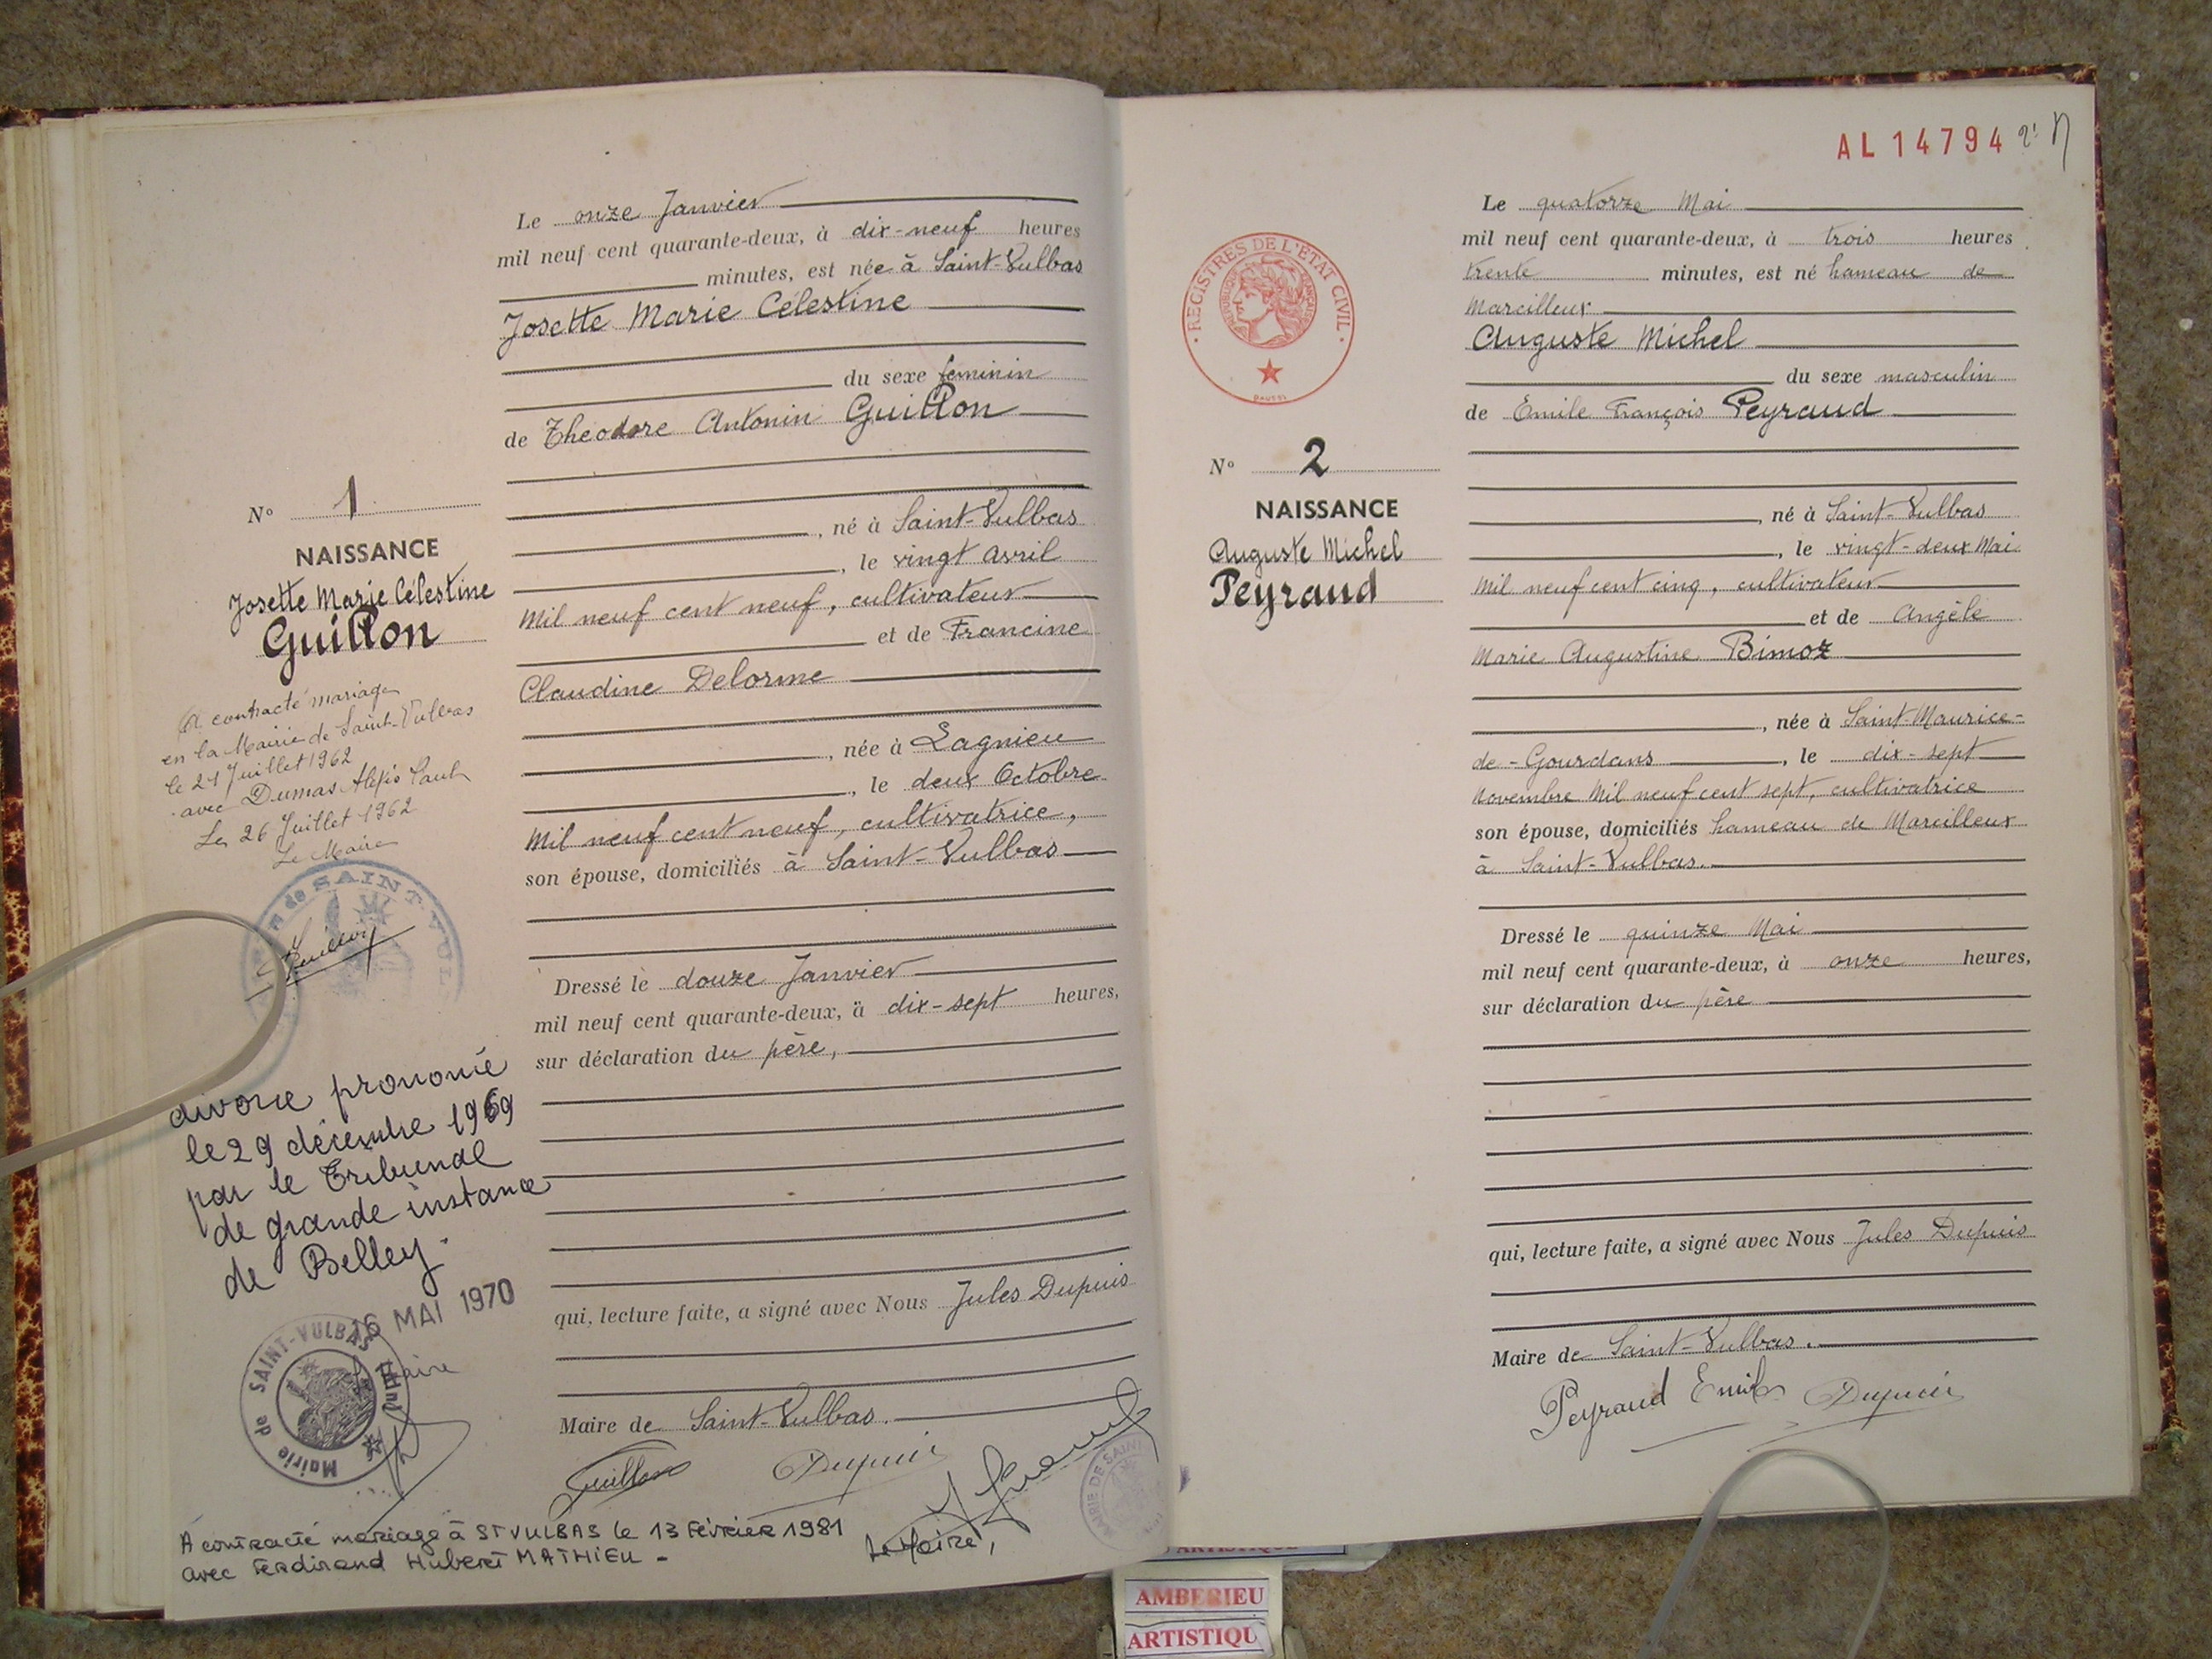 Le onze Janvier
mil neuf cent quarante-deux, à dix-neuf heures
minutes, est née à Saint-Vulbas
Josette Marie Célestine
du sexe féminin
de Théodore Antonin Guillon
, né à Saint-Vulbas
, le vingt avril
Mil neuf cent neuf, cultivateur
et de Francine
Claudine Delorme
, née à Lagnieu
, le deux Octobre
Mil neuf cent neuf, cultivatrice,
son épouse, domiciliés à Saint-Vulbas
Dressé le douze Janvier
mil neuf cent quarante-deux, à dix-sept heures,
sur déclaration du père,
qui, lecture faite, a signé avec Nous Jules Dupuis
Maire de Saint-Vulbas.
Guillon Dupuis
Le Maire,
MAIRIE DE SAINT
N° 1
NAISSANCE
Josette Marie Célestine
Guillon
A contracté mariage
en la Mairie de Saint-Vulbas
le 21 Juillet 1962
avec Dumas Alexis Paul
Le 26 Juillet 1962
Le Maire
de SAINT-VUL
Guillon
divorce prononcé
le 29 décembre 1969
par le Tribunal
de grande instance
de Belley.
16 MAI 1970
Maire
Mairie de SAINT-VULBAS (Ain)
A contracté mariage à ST VULBAS le 13 Février 1981
avec Ferdinand Hubert MATHIEU -
AL 14794
REGISTRES DE L'ETAT CIVIL
REPUBLIQUE FRANÇAISE
N° 2
NAISSANCE
Auguste Michel
Peyraud
Le quatorze Mai
mil neuf cent quarante-deux, à trois heures
trente minutes, est né hameau de
Marcilleux
Auguste Michel
du sexe masculin
de Emile François Peyraud
, né à Saint-Vulbas
, le vingt-deux Mai
Mil neuf cent cinq, cultivateur
et de Angèle
Marie Augustine Bimoz
, née à Saint-Maurice-
de-Gourdans, le dix-sept
Novembre Mil neuf cent sept, cultivatrice
son épouse, domiciliés hameau de Marcilleux
à Saint-Vulbas.
Dressé le quinze Mai
mil neuf cent quarante-deux, à onze heures,
sur déclaration du père
qui, lecture faite, a signé avec Nous Jules Dupuis
Maire de Saint-Vulbas.
Peyraud Emile Dupuis
ARTISTIQUE
AMBERIEU
ARTISTIQU